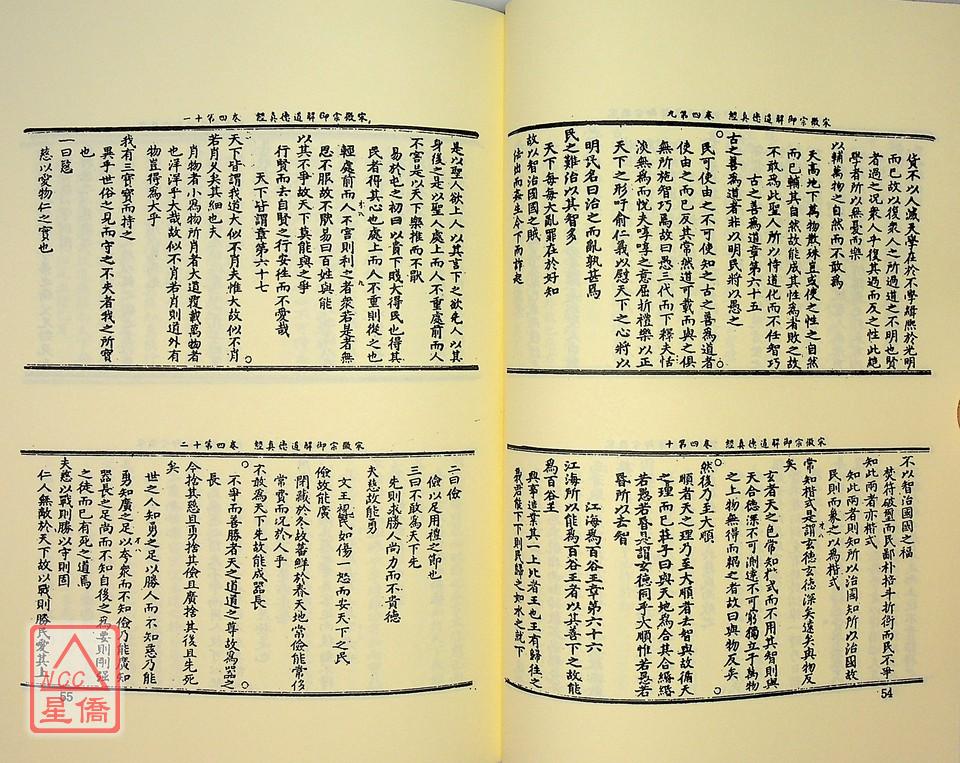 宋徽宗御解道德真經 卷四第九
貨不以人滅天學在於不學緝熙於光明
而已故以復衆人之所過道之不明也賢
者過之况衆人乎復其過而反之性此絶
學者所以無憂而樂
以輔萬物之自然而不敢為
天高地下萬物散殊豈或使之性之自然
而已輔其自然故能成其性為者敗之故
不敢為此聖人所以恃道化而不任智巧
古之善為道章第六十五
古之善為道者非以明民將以愚之
民可使由之不可使知之古之善為道者
使由之而已反其常然道可載而與之俱
無所施智巧焉故曰愚三代而下釋夫恬
淡無為而悅夫啍啍之意屈折禮樂以正
天下之形吁俞仁義以慰天下之心將以
明民名曰治之而亂孰甚焉
民之難治以其智多
天下每每大亂罪在於好知
故以智治國國之賊
法出而姦生令下而詐起
宋徽宗御解道德真經 卷四第十
不以智治國國之福
焚符破璽而民鄙朴掊斗折衡而民不爭
知此兩者亦楷式
知此兩者則知所以治國知所以治國故
民則而象之以為楷式
常知楷式是謂玄德玄德深矣遠矣與物反
矣
玄者天之色常知楷式而不用其智則與
天合德深不可測遠不可窮獨立于萬物
之上物無得而耦之者故曰與物反矣
然後乃至大順
順者天之理乃至大順者去智與故循天
之理而已莊子曰與天地為合其合緡緡
若愚若昏是謂玄德同乎大順惟若愚若
昏所以去智
江海為百谷王章第六十六
江海所以能為百谷王者以其善下之故能
為百谷王
興事造業其一上比者王也王有歸往之
義君能下下則民歸之如水之就下
54
宋徽宗御解道德真經 卷四第十一
是以聖人欲上人以其言下之欲先人以其
身後之是以聖人處上而人不重處前而人
不害是以天下樂推而不厭
易於屯之初曰以貴下賤大得民也得其
民者得其心也處上而人不重則從之也
輕處前而人不害則利之者衆若是者無
思不服故不厭易曰百姓與能
以其不爭故天下莫能與之爭
行賢而去自賢之行安往而不愛哉
天下皆謂章第六十七
天下皆謂我道大似不肖夫惟大故似不肖
若肖久矣其細也夫
肖物者小為物所肖者大道覆載萬物者
也洋洋乎大哉故似不肖若肖則道外有
物豈得為大乎
我有三寶寶而持之
異乎世俗之見而守之不失者我之所寶
也
一曰慈
慈以愛物仁之實也
宋徽宗御解道德真經 卷四第十二
二曰儉
儉以足用禮之節也
三曰不敢為天下先
先則求勝人尚力而不貴德
夫慈故能勇
文王視民如傷一怒而安天下之民
儉故能廣
閉藏於冬故蕃鮮於春天地常儉能常侈
常費而况於人乎
不敢為天下先故能成器長
不爭而善勝者天之道道之尊故為器之
長
今捨其慈且勇捨其儉且廣捨其後且先死
矣
世之人知勇之足以勝人而不知慈乃能
勇知廣之足以夸衆而不知儉乃能廣知
器長之足尚而不知自後之為要則剛强
之徒而已有死之道焉
夫慈以戰則勝以守則固
仁人無敵於天下故以戰則勝民愛其上
55
NCC
星僑